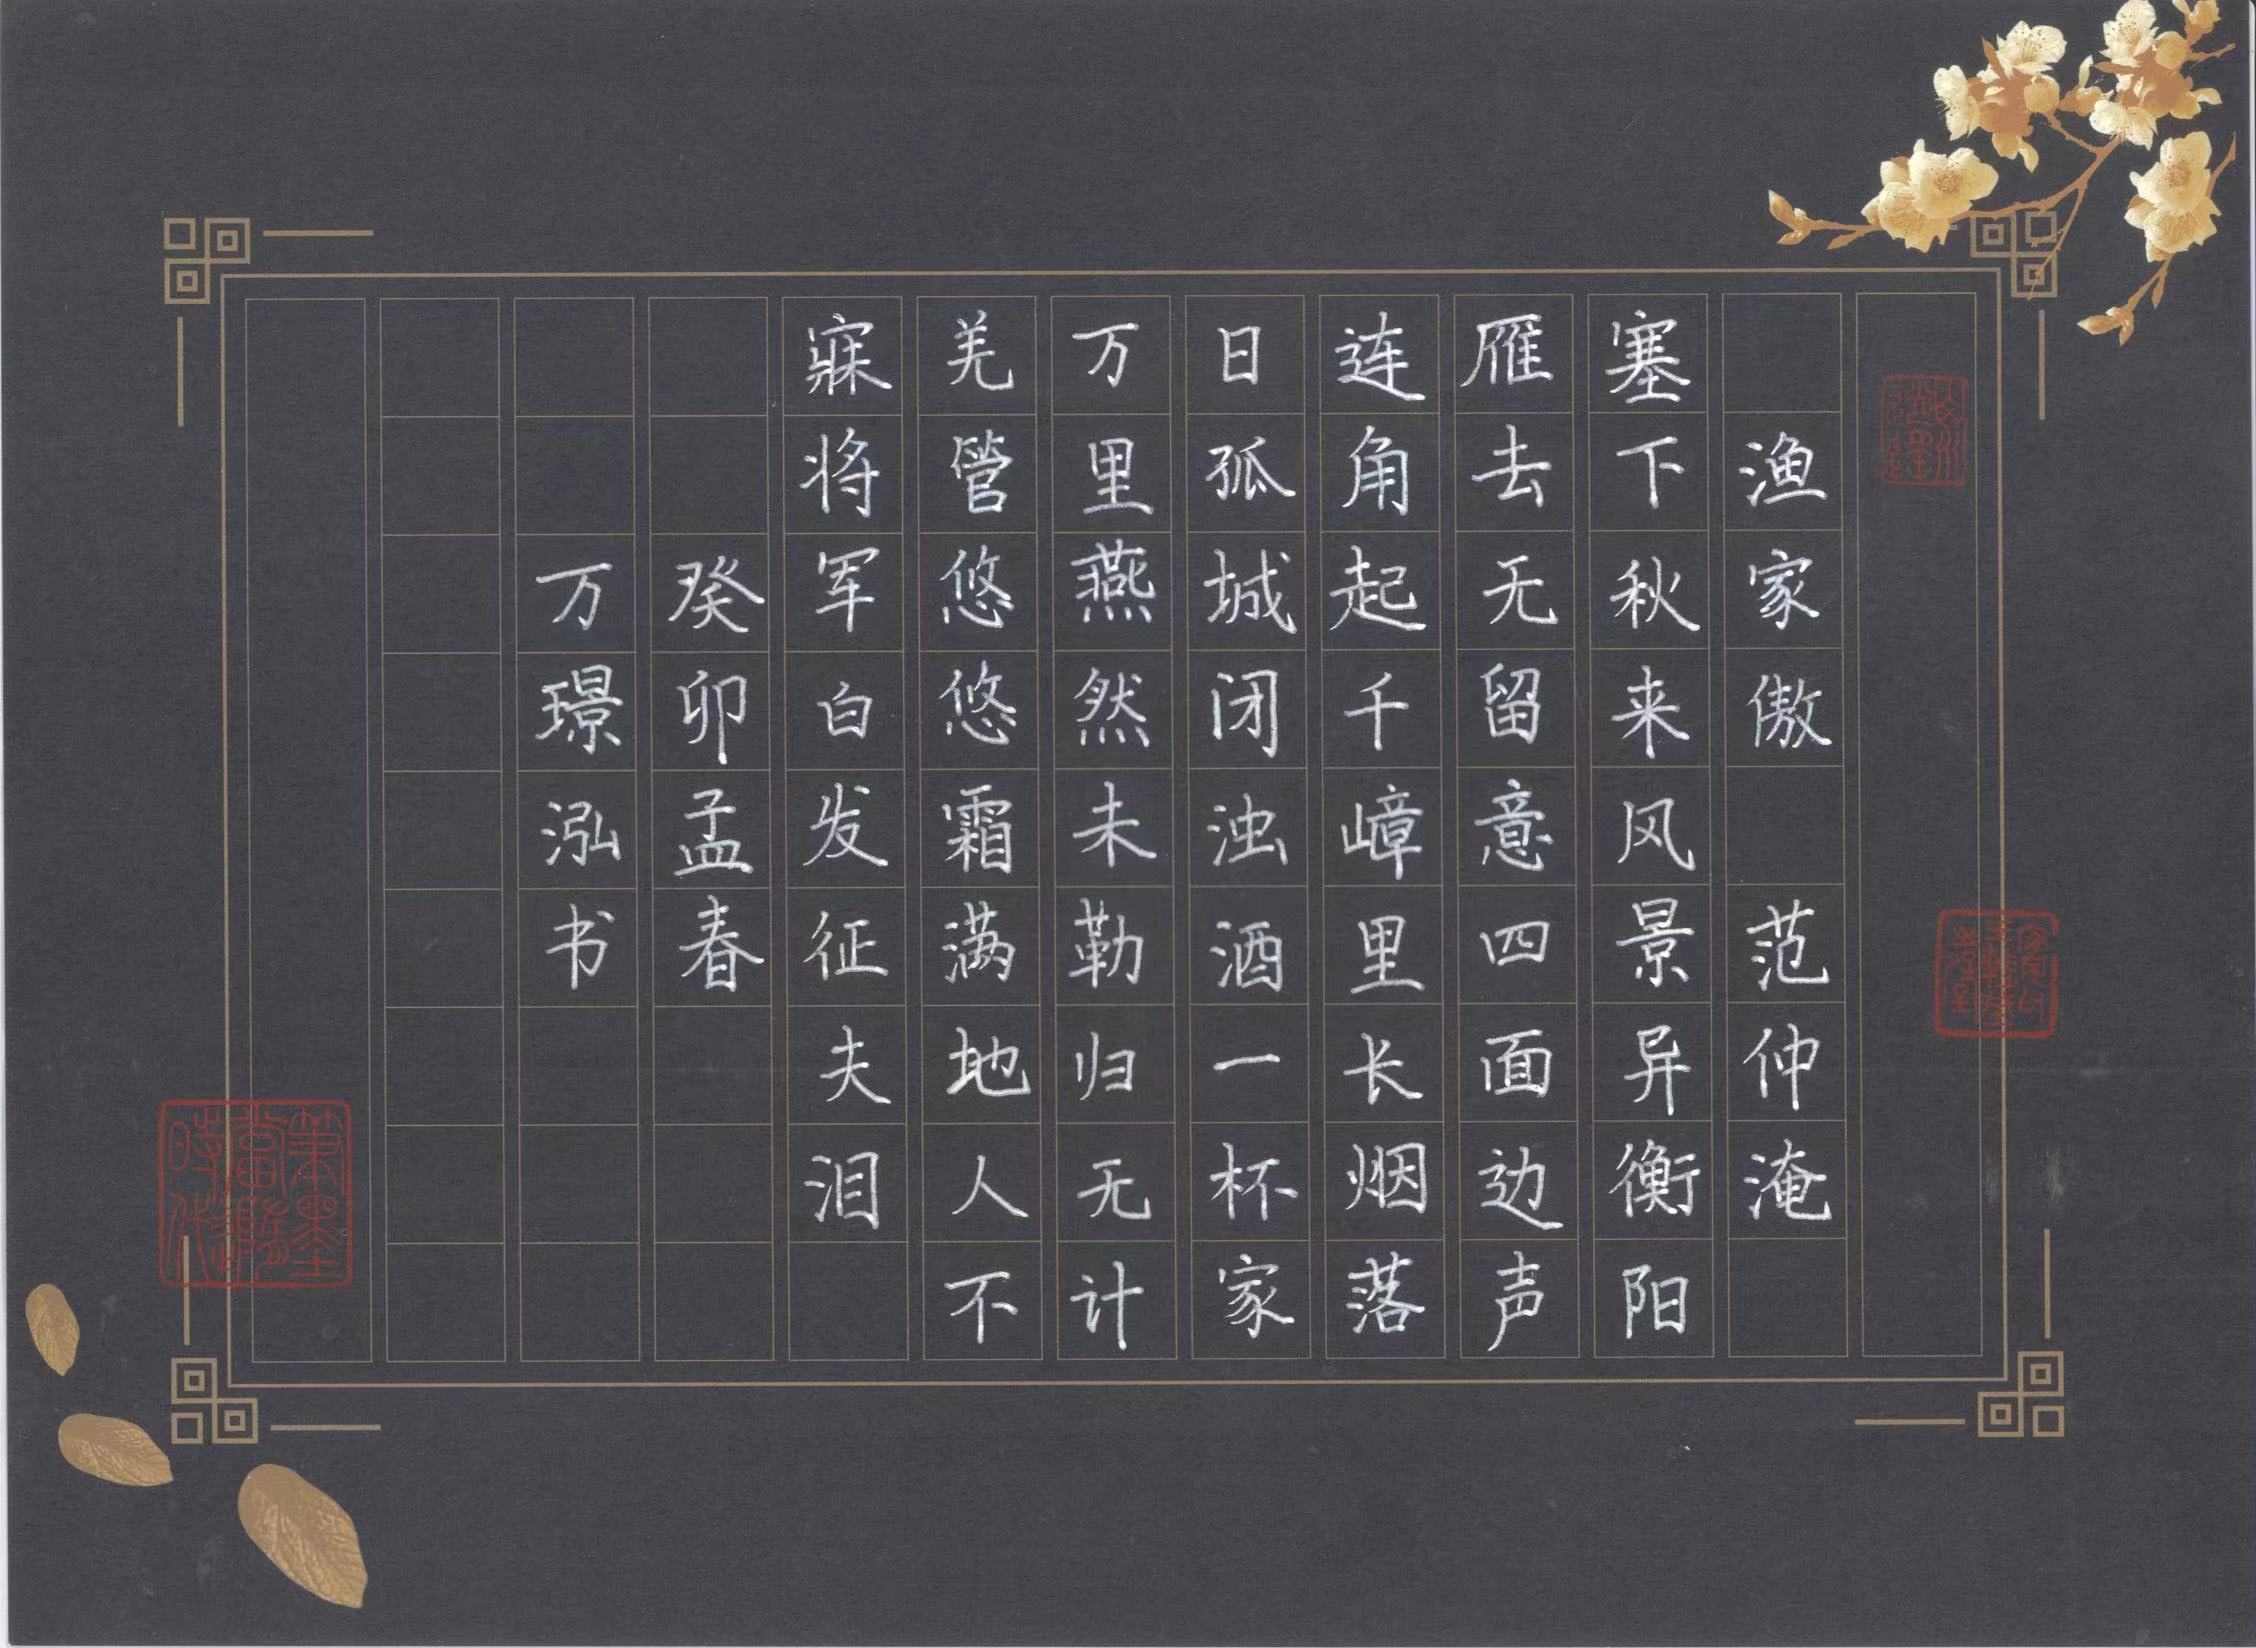 渔家傲 范仲淹
塞下秋来风景异衡阳
雁去无留意四面边声
连角起千嶂里长烟落
日孤城闭浊酒一杯家
万里燕然未勒归无计
羌管悠悠霜满地人不
寐将军白发征夫泪
癸卯孟春
万璟泓书
笔墨当随时代